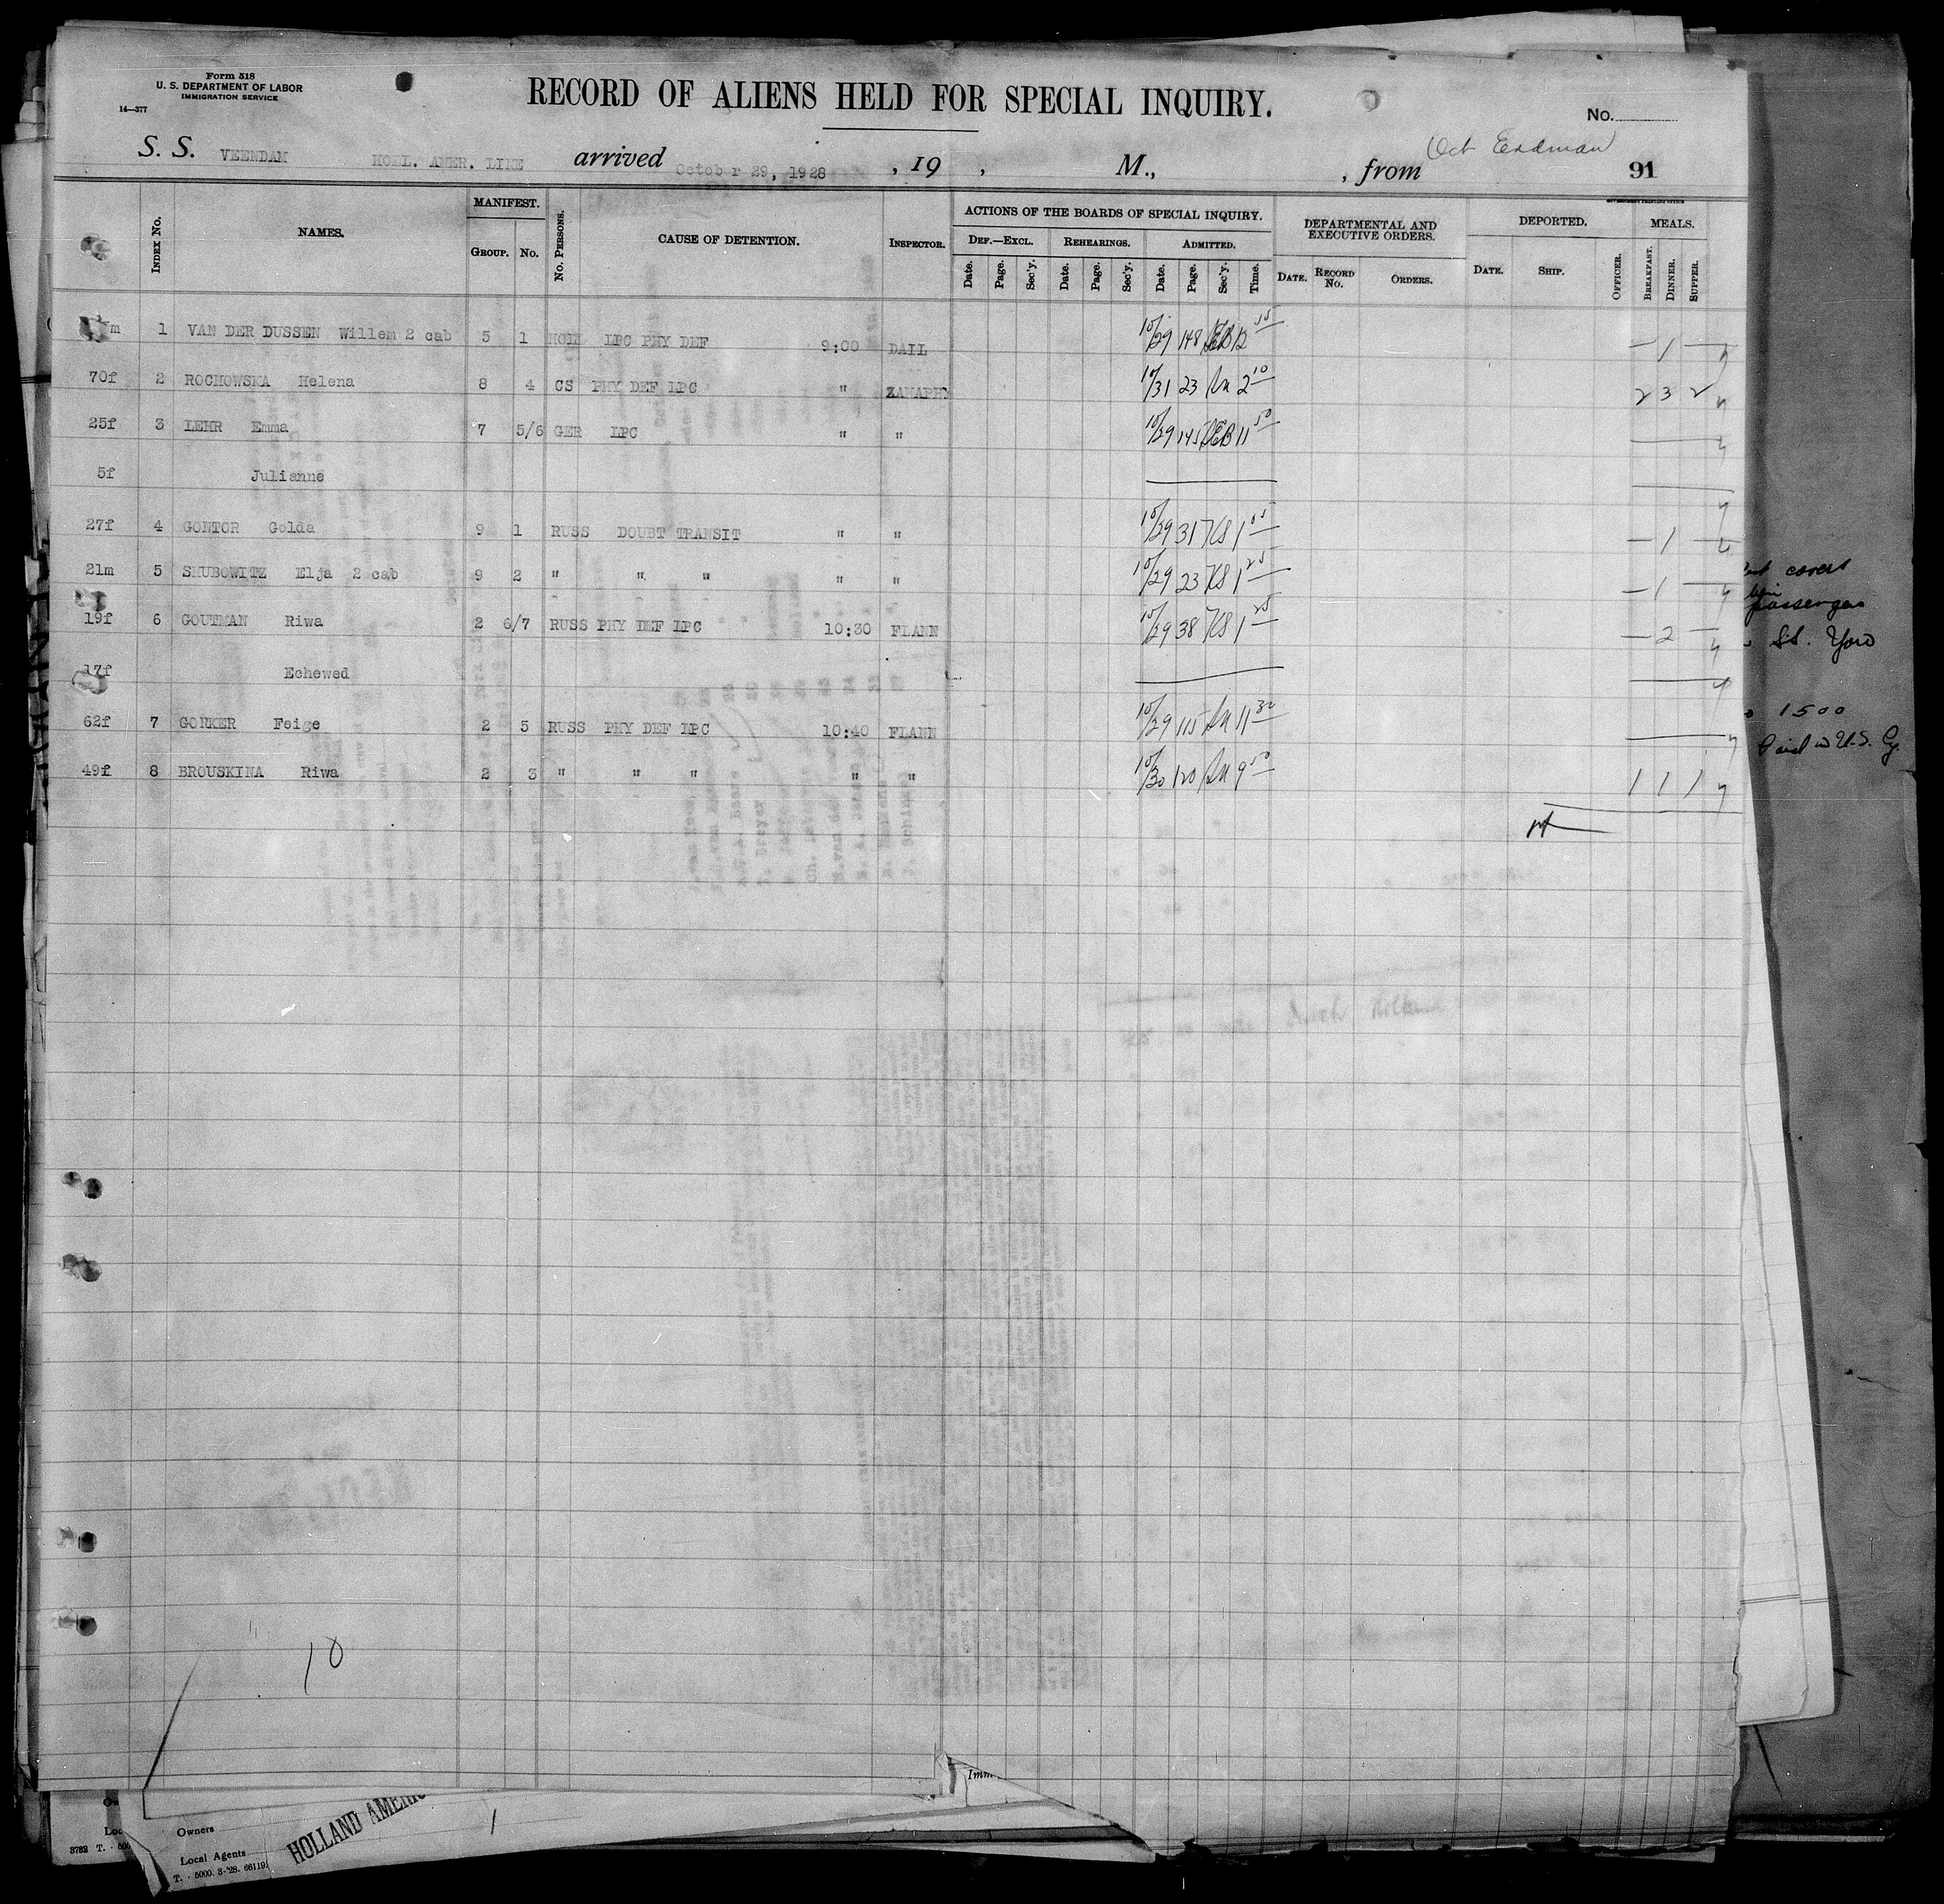 Form 518
U. S. DEPARTMENT OF LABOR
IMMIGRATION SERVICE
14—377
RECORD OF ALIENS HELD FOR SPECIAL INQUIRY.
No.
S. S. VEENDAM HOLL. AMER. LINE arrived October 29, 1928, 19 , M., , from
91
INDEX NO. NAMES. MANIFEST. GROUP. NO. NO. PERSONS. CAUSE OF DETENTION. INSPECTOR. ACTIONS OF THE BOARDS OF SPECIAL INQUIRY. DEPARTMENTAL AND EXECUTIVE ORDERS. DEPORTED. MEALS.
DEF.—EXCL. REHEARINGS. ADMITTED.
Date. Page. Sec'y. Date. Page. Sec'y. Date. Page. Sec'y. Time. DATE. RECORD NO. ORDERS. DATE. SHIP. OFFICER. BREAKFAST. DINNER. SUPPER.
m 1 VAN DER DUSSEN Willem 2 cab 5 1 HOLL LPC PHY DEF 9:00 DAIL 10/29 148 — 1 —
70f 2 ROCHOWSKA Helena 8 4 CS PHY DEF LPC " 10/31 23 2 10 2 3 2
25f 3 LEHR Emma 7 5/6 GER LPC " " 10/29 145 11 50
5f Julianne
27f 4 GONTOR Golda 9 1 RUSS DOUBT TRANSIT " " 10/29 31 KS 1 05 — 1 —
21m 5 SHUBOWITZ Elja 2 cab 9 2 " " " " " 10/29 23 KS 1 25 — 1 —
19f 6 GOUTMAN Riwa 2 6/7 RUSS PHY DEF LPC 10:30 FLANN 10/29 38 KS 1 25 — 2 —
17f Echewed
62f 7 GORKER Feige 2 5 RUSS PHY DEF LPC 10:40 FLANN 10/29 115 11 30
49f 8 BROUSKINA Riwa 2 3 " " " " " 10/30 120 9 50 1 1 1
covers
passenger
S.S.
1500
Paid in U.S. Cy.
10
Imm
Owners
Local Agents
T. - 5000. 3-'28. 66119
HOLLAND AMERIC
1
3782 T. - 500